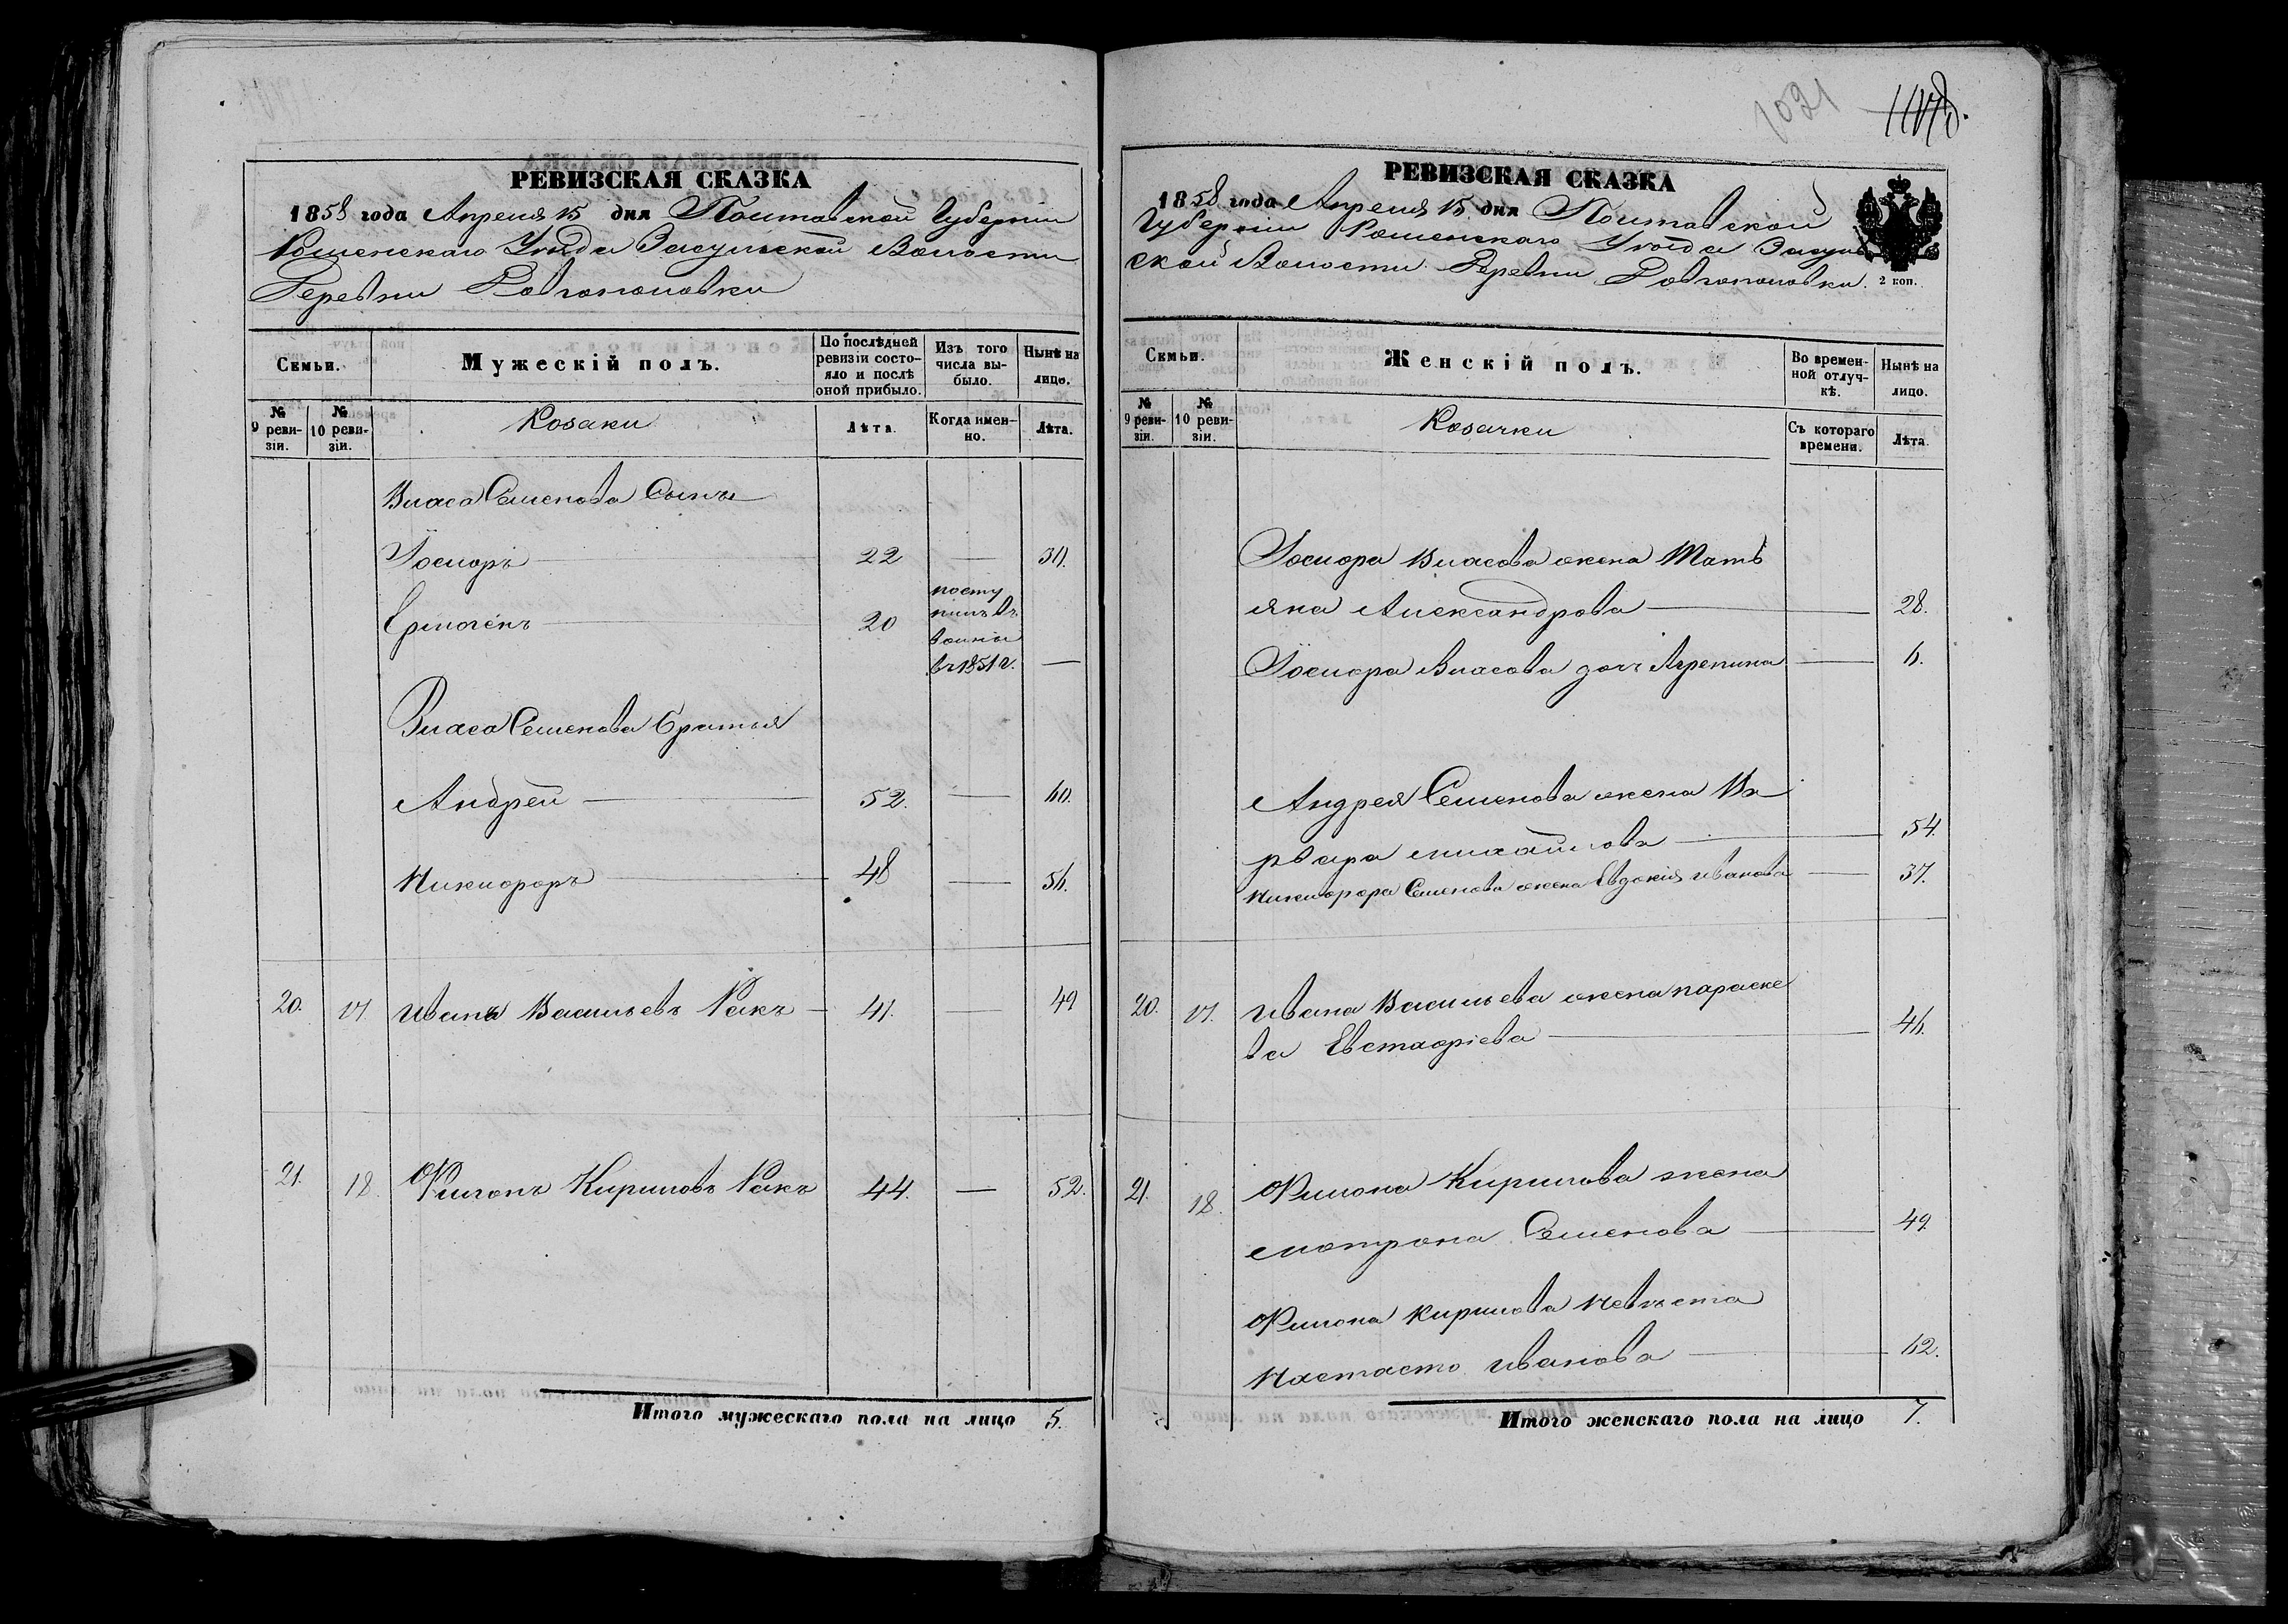 РЕВИЗСКАЯ СКАЗКА
1858 года Апреля 15 дня Полтавской Губерніи
Роменскаго Уѣзда Засульской Волости
Деревни Довгополовки
Семьи.
Мужескій полъ.
По послѣдней ревизіи состояло и послѣ оной прибыло.
Изъ того числа выбыло.
Нынѣ на лицо.
№ 9 ревизіи.
№ 10 ревизіи.
Козаки
Лѣта.
Когда именно.
Лѣта.
Власа Семенова Сыны
Іосифъ 22 — 30.
Ермогенъ 20
посту
пилъ въ
воины
въ 1851 г. —
Власа Семенова Братья
Андрей 52. — 60.
Никифоръ 48 — 56.
20. 17. Иванъ ВасильевъРакъ 41. — 49
21. 18. Филонъ Кириловъ Ракъ 44. — 52.
Итого мужескаго пола на лицо 5.
1021
РЕВИЗСКАЯ СКАЗКА
1858 года Апреля 15 дня Полтавской
Губерніи Роменскаго Уѣзда Засуль
ской Волости Деревни Довгополовки.
2 коп.
Семьи.
Женскій полъ.
Во временной отлучкѣ.
Нынѣ на лицо.
№ 9 ревизіи.
№ 10 ревизіи.
Козачки
Съ котораго времени.
Лѣта.
Іосифа Власова жена Тать
яна Александрова — 28.
Іосифа Власова доч Агрепина — 6.
Андрея Семенова жена Ва
рвара михайлова — 54.
Никифора Семенова жена Евдокія иванова — 37.
20. 17. Ивана Васильева жена параске
ва Евстафіева — 46.
21. 18. Филона Кирилова жена
мотрона Семенова — 49.
Филона Кирилова невѣста
Настасія иванова — 62.
Итого женскаго пола на лицо 7.